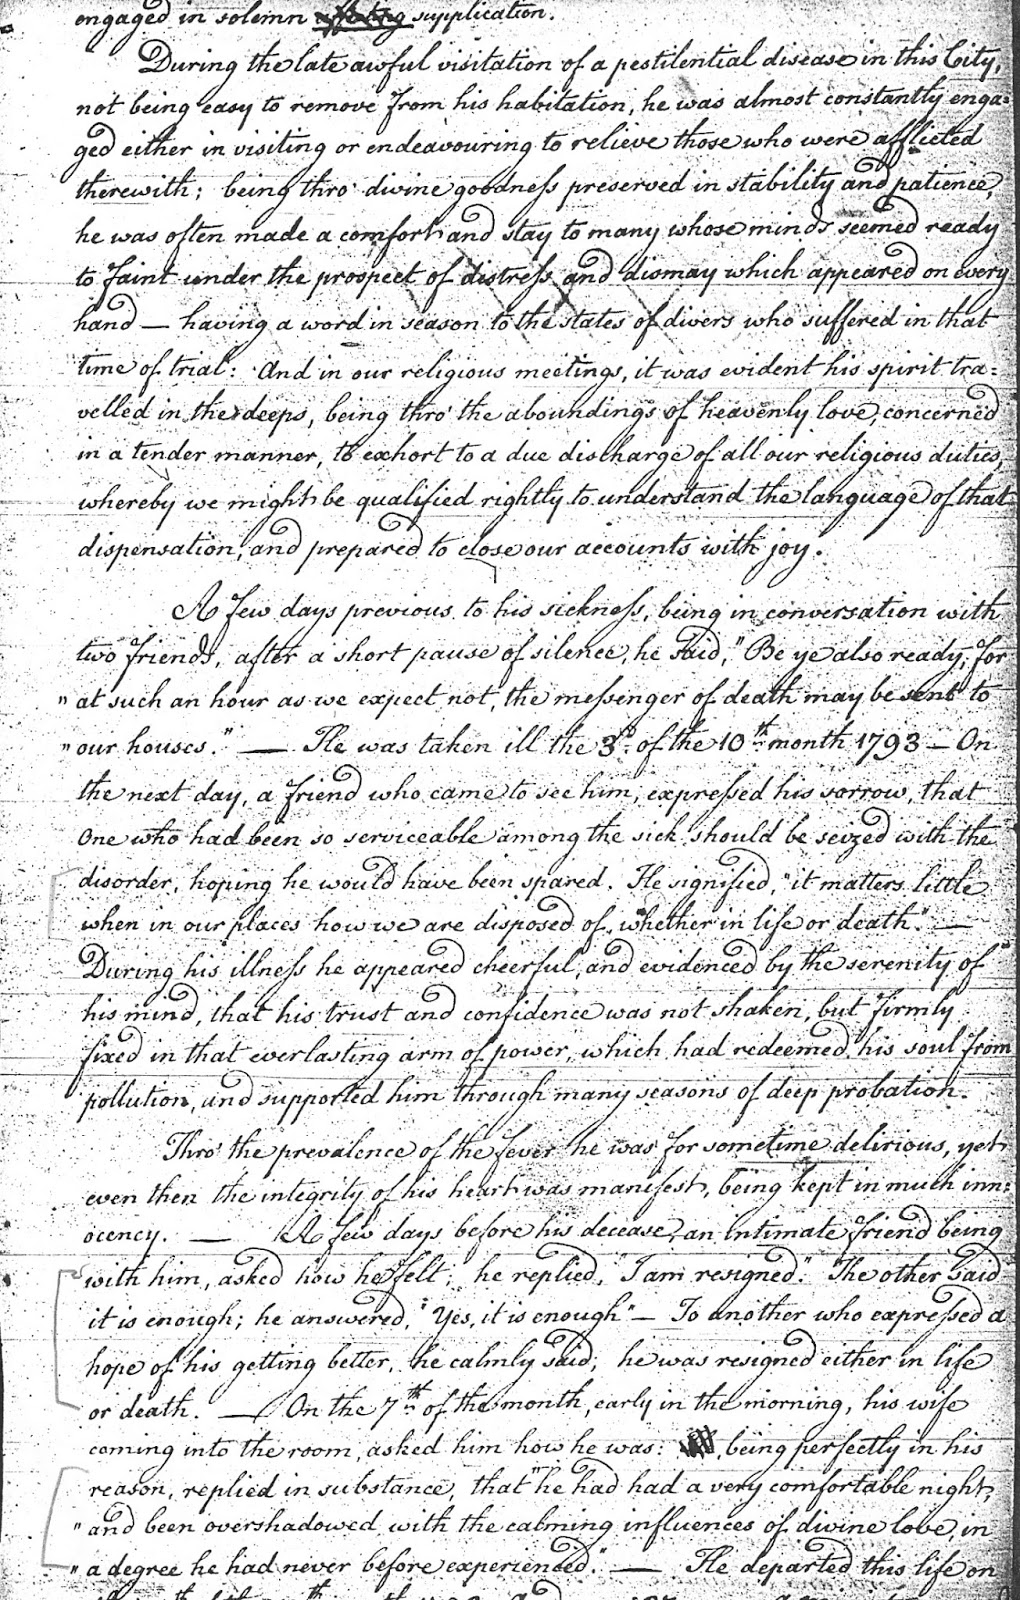 engaged in solemn supplication.
During the late awful visitation of a pestilential disease in this City,
not being easy to remove from his habitation, he was almost constantly enga=
ged either in visiting or endeavouring to relieve those who were afflicted
therewith; being thro' divine goodness preserved in stability and patience,
he was often made a comfort and stay to many whose minds seemed ready
to faint under the prospect of distress and dismay which appeared on every
hand — having a word in season to the states of divers who suffered in that
time of trial: And in our religious meetings, it was evident his spirit tra=
velled in the deeps, being thro' the aboundings of heavenly love, concerned
in a tender manner, to exhort to a due discharge of all our religious duties,
whereby we might be qualified rightly to understand the language of that
dispensation, and prepared to close our accounts with joy.
A few days previous to his sickness, being in conversation with
two friends, after a short pause of silence, he said, "Be ye also ready, for
" at such an hour as we expect not, the messenger of death may be sent to
" our houses." — He was taken ill the 3d. of the 10th month 1793 — On
the next day, a friend who came to see him, expressed his sorrow, that
one who had been so serviceable among the sick should be seized with the
disorder, hoping he would have been spared. He signified, "it matters little
when in our places how we are disposed of, whether in life or death." —
During his illness he appeared cheerful, and evidenced by the serenity of
his mind, that his trust and confidence was not shaken, but firmly
fixed in that everlasting arm of power, which had redeemed his soul from
pollution, and supported him through many seasons of deep probation.
Thro' the prevalence of the fever he was for sometime delirious, yet
even then the integrity of his heart was manifest, being kept in much inn=
ocency. — A few days before his decease, an intimate friend being
with him, asked how he felt; he replied, "I am resigned." The other said
it is enough; he answered, "Yes, it is enough" — To another who expressed a
hope of his getting better, he calmly said, he was resigned either in life
or death. — On the 7th of the month, early in the morning, his wife
coming into the room, asked him how he was: being perfectly in his
reason, replied in substance, that "he had had a very comfortable night,
" and been overshadowed with the calming influences of divine love, in
" a degree he had never before experienced." — He departed this life on